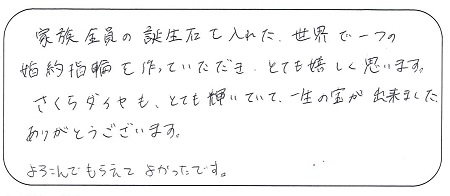 家族全員の誕生石を入れた、世界で一つの
婚約指輪を作っていただき、とても嬉しく思います。
さくらダイヤも、とても輝いていて、一生の宝が出来ました
ありがとうございます。
よろこんでもらえて よかったです。